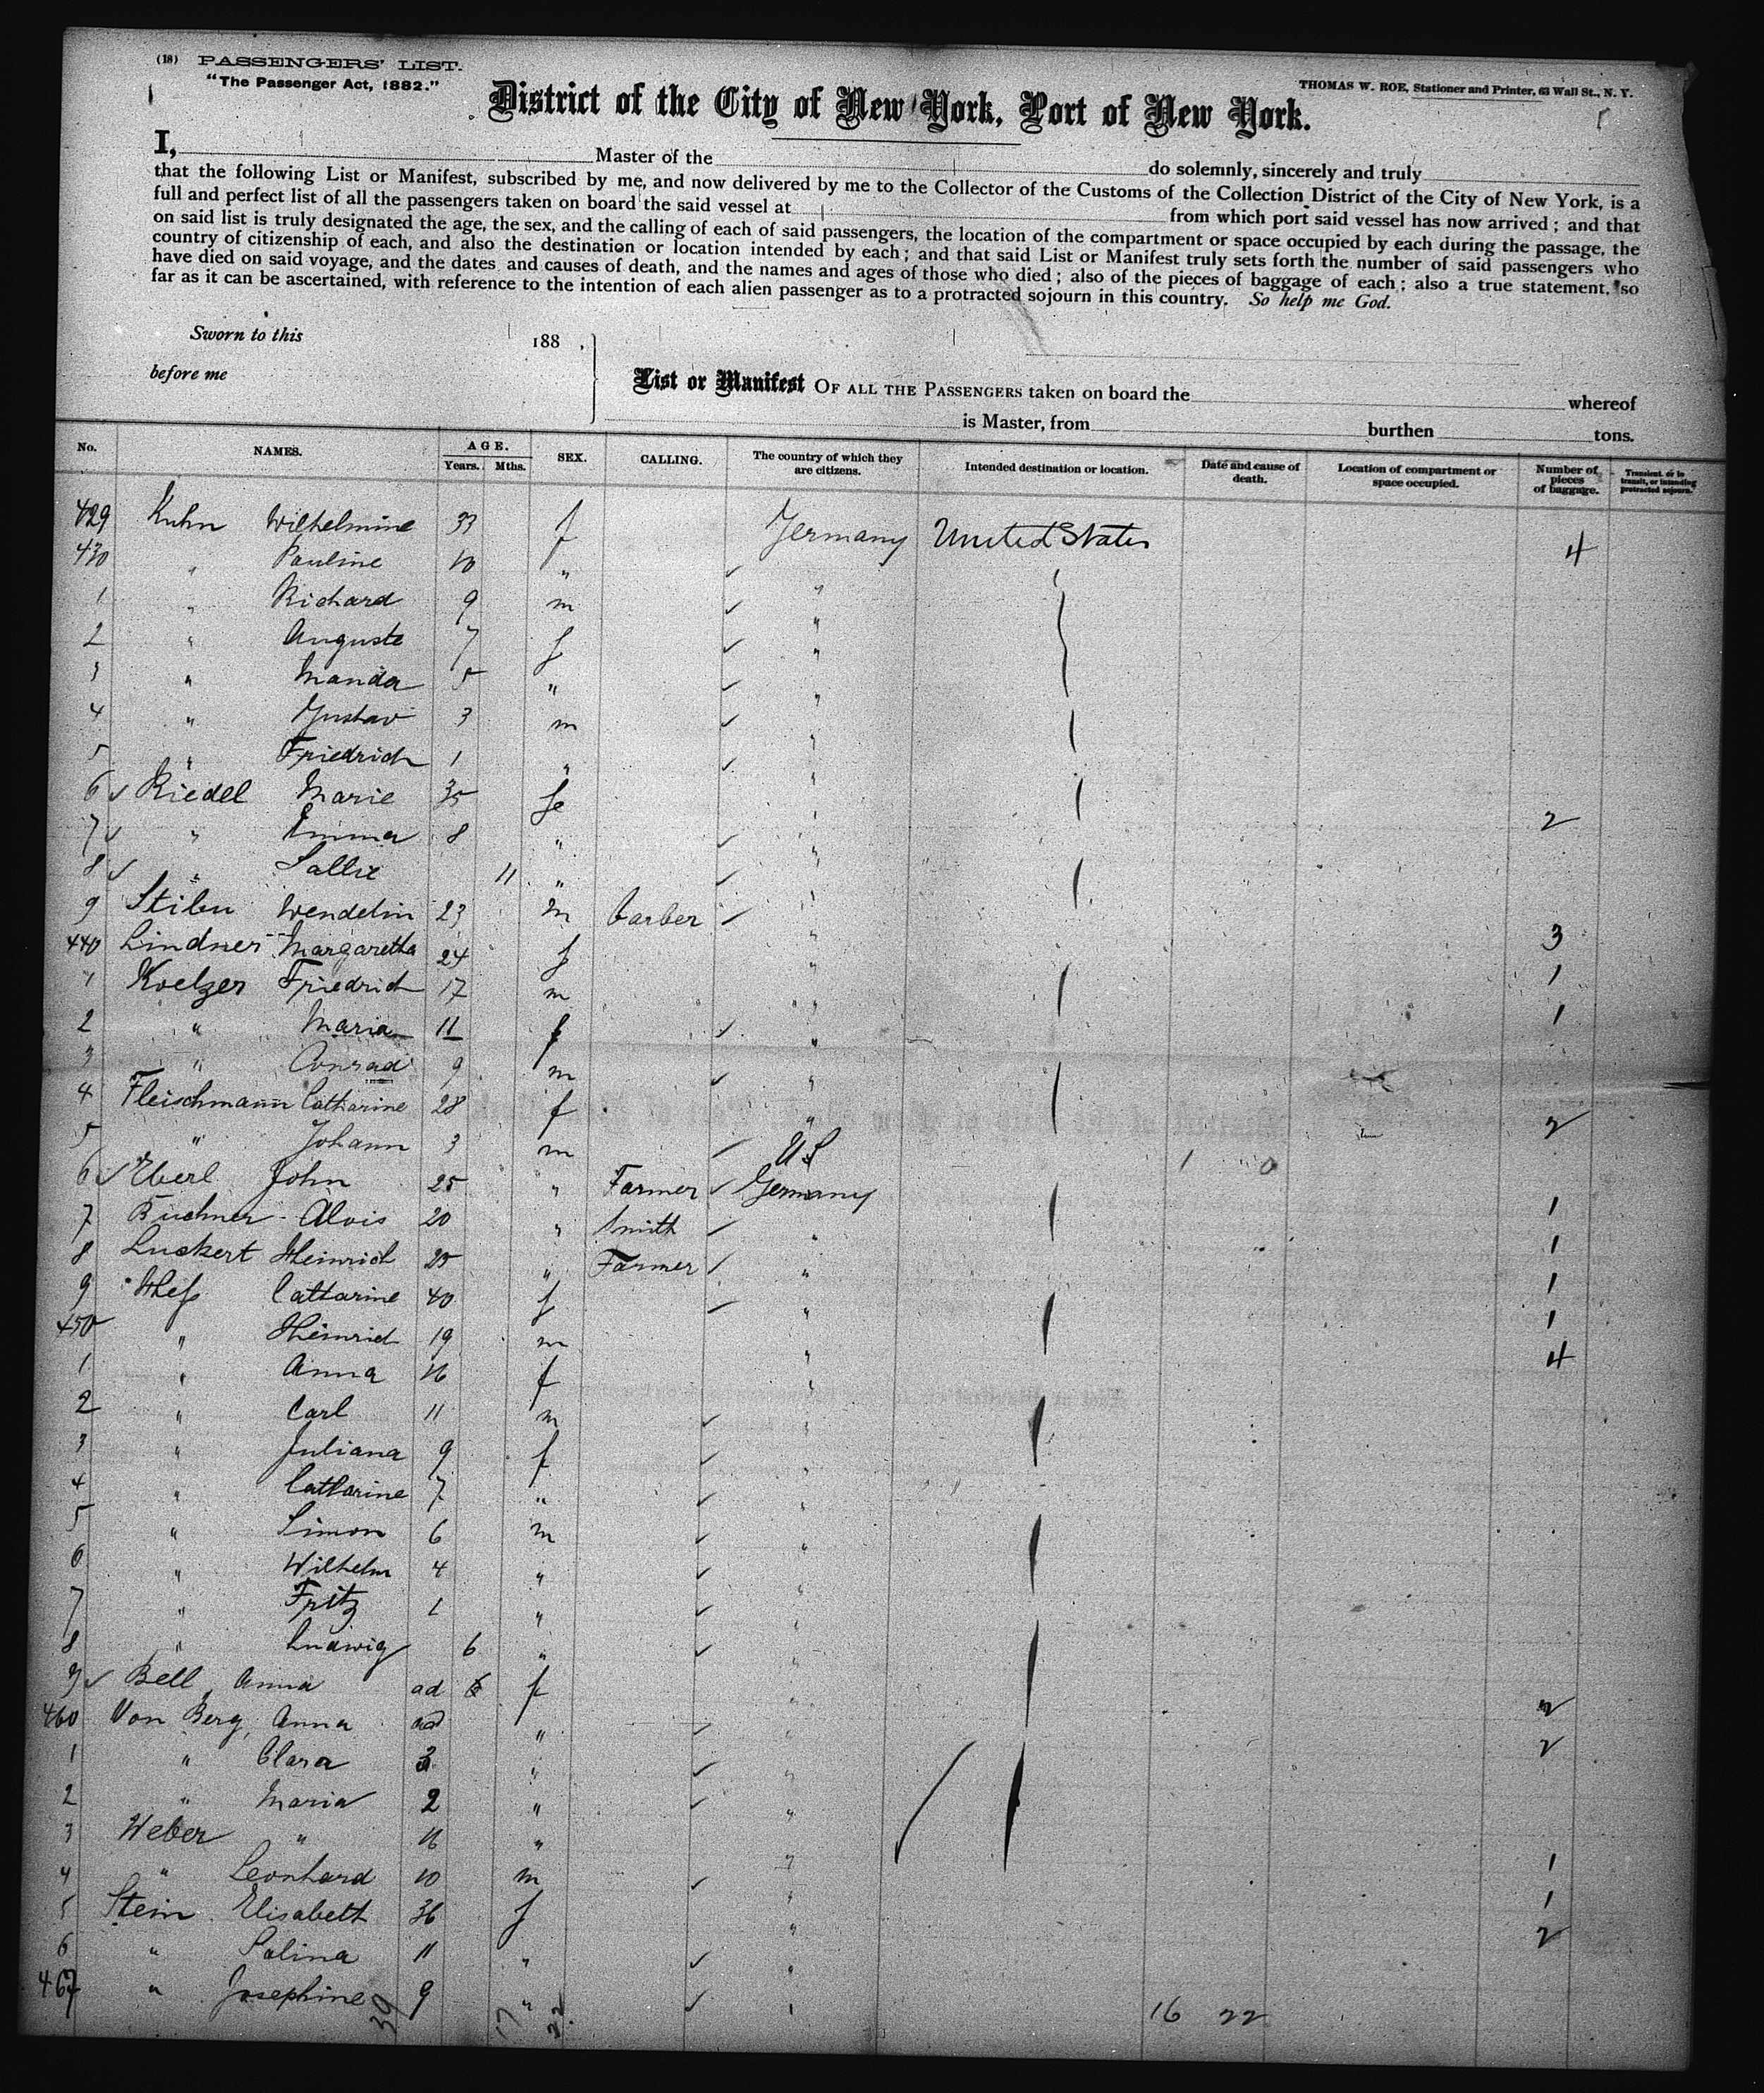 (18) PASSENGERS' LIST.
"The Passenger Act, 1882."
THOMAS W. ROE, Stationer and Printer, 63 Wall St., N. Y.
District of the City of New York, Port of New York.
I, Master of the do solemnly, sincerely and truly
that the following List or Manifest, subscribed by me, and now delivered by me to the Collector of the Customs of the Collection District of the City of New York, is a
full and perfect list of all the passengers taken on board the said vessel at from which port said vessel has now arrived; and that
on said list is truly designated the age, the sex, and the calling of each of said passengers, the location of the compartment or space occupied by each during the passage, the
country of citizenship of each, and also the destination or location intended by each; and that said List or Manifest truly sets forth the number of said passengers who
have died on said voyage, and the dates and causes of death, and the names and ages of those who died; also of the pieces of baggage of each; also a true statement, so
far as it can be ascertained, with reference to the intention of each alien passenger as to a protracted sojourn in this country. So help me God.
Sworn to this 188 .
before me
List or Manifest OF ALL THE PASSENGERS taken on board the whereof
is Master, from burthen tons.
No. NAMES. AGE. Years. Mths. SEX. CALLING. The country of which they are citizens. Intended destination or location. Date and cause of death. Location of compartment or space occupied. Number of pieces of baggage. Transient, or in transit, or intending protracted sojourn.
429 Kuhn Wilhelmine 33 f Germany United States 4
430 " Pauline 10 " "
1 " Richard 9 m "
2 " Auguste 7 f "
3 " Manda 5 " "
4 " Gustav 3 m "
5 " Friedrich 1 " "
6 Riedel Marie 35 fe " 2
7 " Emma 8 " "
8 " Sallie 11 " "
9 Wendelin 23 m barber " 3
440 Lindner Margaretha 24 f " 1
1 Koelzer Friedrich 17 m " 1
2 " Maria 11 f "
3 " Conrad 9 m "
4 Fleischmann Catharine 28 f " 2
5 " Johann 3 m US 1 0
6 Eberl John 25 " Farmer Germany 1
7 Buchner Alois 20 " Smith " 1
8 Luckert Heinrich 25 " Farmer " 1
9 Heß Catharine 40 f " 1
450 " Heinrich 19 m " 4
1 " Anna 16 f "
2 " Carl 11 m "
3 " Juliana 9 f "
4 " Catharine 7 " "
5 " Simon 6 m "
6 " Wilhelm 4 " "
7 " Fritz 1 " "
8 " Ludwig 6 " "
9 Bell, Anna ad f " 2
460 Von Berg, Anna ad " " 2
1 " Clara 3 " "
2 " Maria 2 " "
3 Weber " 16 " " 1
4 " Leonhard 10 m " 1
5 Stein Elisabeth 36 f " 2
6 " Salina 11 " "
467 " Josephine 9 " "
39 17 22 16 22